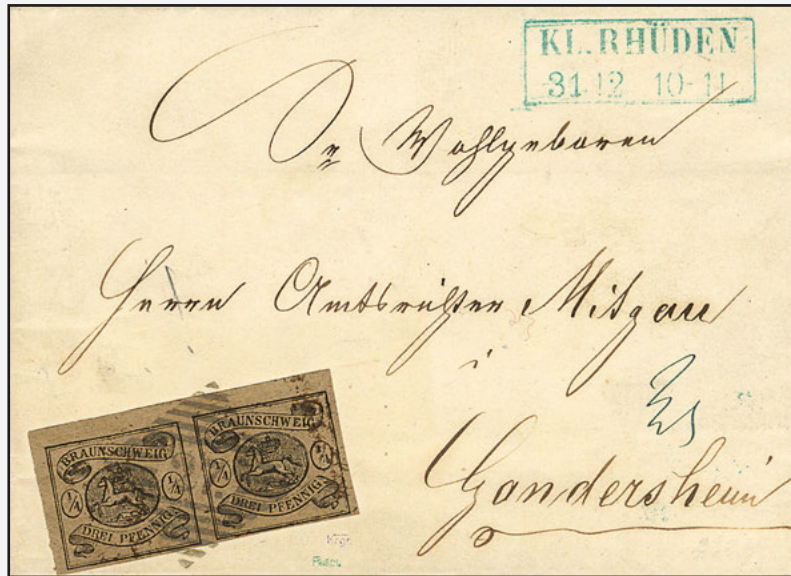 KL. RHÜDEN
31 12 10-11
Sr Wohlgeboren
Herrn Amtsrichter Mitgau
i
Gandersheim
BRAUNSCHWEIG
1/4 1/4
DREI PFENNIG
BRAUNSCHWEIG
1/4 1/4
DREI PFENNIG